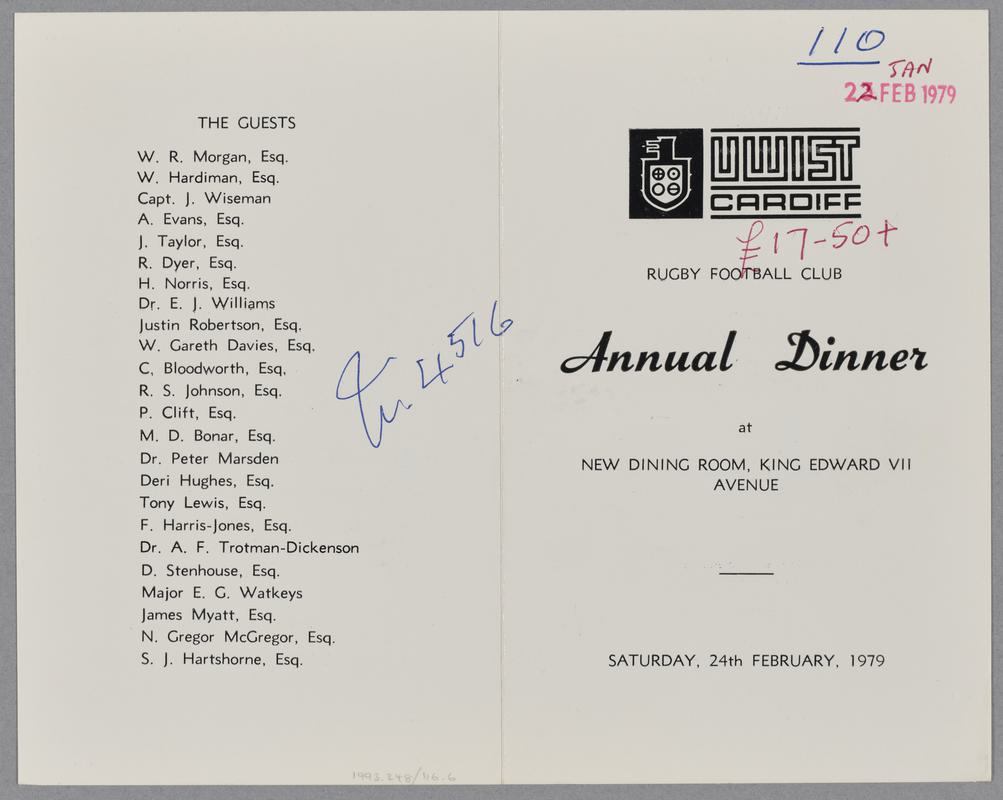 THE GUESTS
W. R. Morgan, Esq.
W. Hardiman, Esq.
Capt. J. Wiseman
A. Evans, Esq.
J. Taylor, Esq.
R. Dyer, Esq.
H. Norris, Esq.
Dr. E. J. Williams
Justin Robertson, Esq.
W. Gareth Davies, Esq.
C, Bloodworth, Esq.
R. S. Johnson, Esq.
P. Clift, Esq.
M. D. Bonar, Esq.
Dr. Peter Marsden
Deri Hughes, Esq.
Tony Lewis, Esq.
F. Harris-Jones, Esq.
Dr. A. F. Trotman-Dickenson
D. Stenhouse, Esq.
Major E. G. Watkeys
James Myatt, Esq.
N. Gregor McGregor, Esq.
S. J. Hartshorne, Esq.
4516
1993.248/116.6
110
JAN
22 FEB 1979
UWIST
CARDIFF
£17-50+
RUGBY FOOTBALL CLUB
Annual Dinner
at
NEW DINING ROOM, KING EDWARD VII
AVENUE
SATURDAY, 24th FEBRUARY, 1979